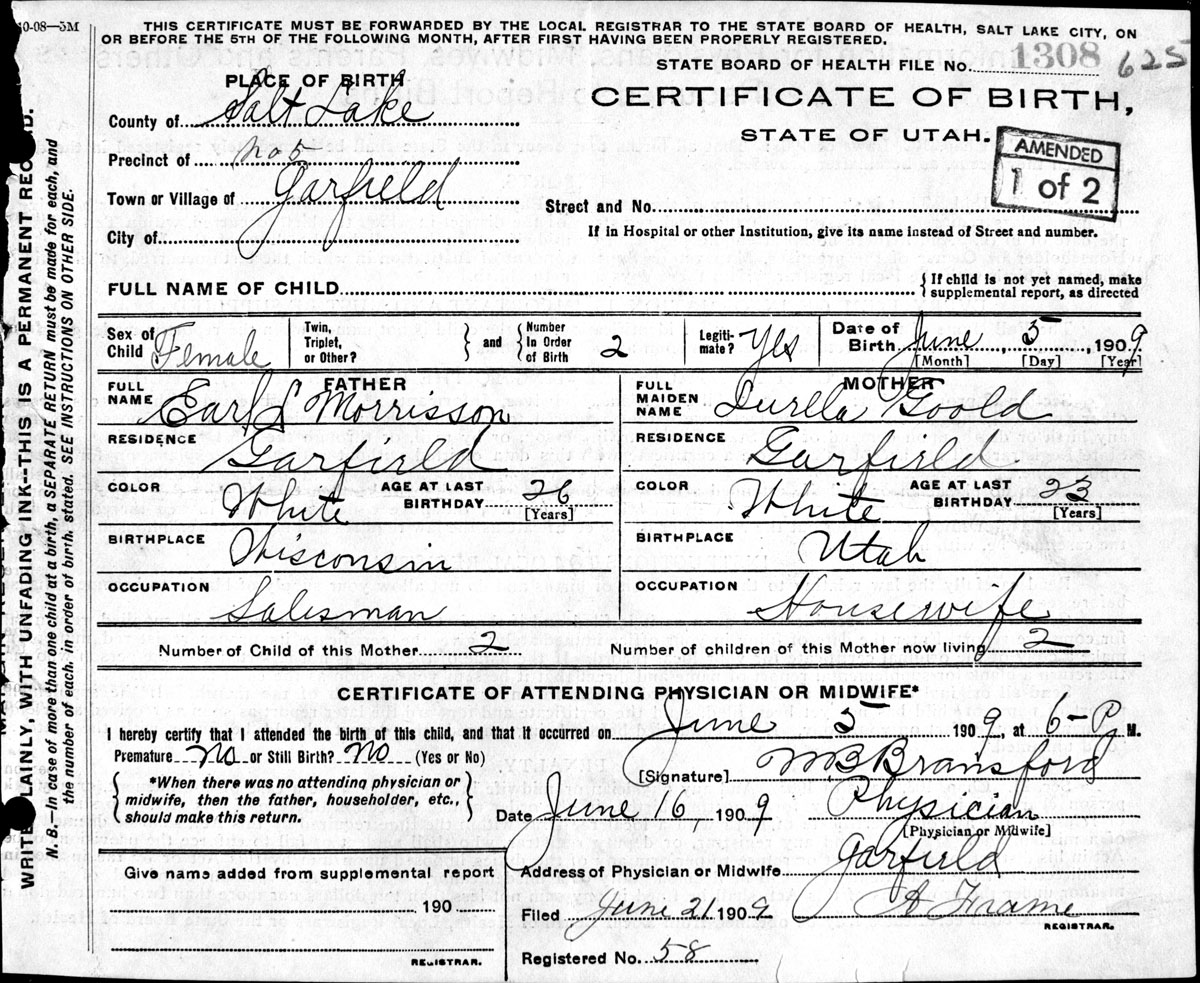 10-08—5M
THIS CERTIFICATE MUST BE FORWARDED BY THE LOCAL REGISTRAR TO THE STATE BOARD OF HEALTH, SALT LAKE CITY, ON
OR BEFORE THE 5TH OF THE FOLLOWING MONTH, AFTER FIRST HAVING BEEN PROPERLY REGISTERED.
STATE BOARD OF HEALTH FILE No. 1308 625
PLACE OF BIRTH
CERTIFICATE OF BIRTH,
STATE OF UTAH.
AMENDED
1 of 2
County of Salt Lake
Precinct of No 5
Town or Village of Garfield
Street and No.
City of
If in Hospital or other Institution, give its name instead of Street and number.
FULL NAME OF CHILD
{If child is not yet named, make
supplemental report, as directed
Sex of Child Female
Twin, Triplet, or Other? } and { Number In Order of Birth 2
Legiti-mate? Yes
Date of Birth June, 5, 1909
[Month] [Day] [Year]
FATHER
FULL NAME Earl Morrisson
MOTHER
FULL MAIDEN NAME Durella Goold
RESIDENCE Garfield
RESIDENCE Garfield
COLOR White AGE AT LAST BIRTHDAY 26 [Years]
COLOR White AGE AT LAST BIRTHDAY 23 [Years]
BIRTHPLACE Wisconsin
BIRTHPLACE Utah
OCCUPATION Salesman
OCCUPATION Housewife
Number of Child of this Mother 2
Number of children of this Mother now living 2
CERTIFICATE OF ATTENDING PHYSICIAN OR MIDWIFE*
I hereby certify that I attended the birth of this child, and that it occurred on June 5 1909, at 6-P M.
Premature No or Still Birth? No (Yes or No)
[Signature] M B Bransford
{*When there was no attending physician or
midwife, then the father, householder, etc.,
should make this return.}
Date June 16, 1909 Physician
[Physician or Midwife]
Address of Physician or Midwife Garfield
Give name added from supplemental report
190
REGISTRAR.
Filed June 21 1909 A Frame
REGISTRAR.
Registered No. 58
WRITE PLAINLY, WITH UNFADING INK--THIS IS A PERMANENT RECORD.
N. B.—In case of more than one child at a birth, a SEPARATE RETURN must be made for each, and
the number of each, in order of birth, stated. SEE INSTRUCTIONS ON OTHER SIDE.